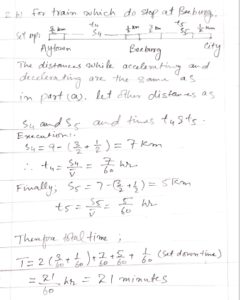 2 b) for train which do stop at Beeburg.
Set up:- 3/2 km t4 S4 1/2 km 3/2 km t5 S5 1/2 km
Aytown Beeburg City
The distances while accelerating and
decelerating are the same as
in part (a). let other distances as
S4 and S5 and times t4 & t5.
Execution:-
S4 = 9 - (3/2 + 1/2) = 7 km
∴ t4 = S4/V = 7/60 hr
Finally; S5 = 7 - (3/2 + 1/2) = 5 km
t5 = S5/V = 5/60 hr
Therefore total time ;
T = 2(3/60 + 1/60) + 7/60 + 5/60 + 1/60 (set down time)
= 21/60 hr = 21 minutes